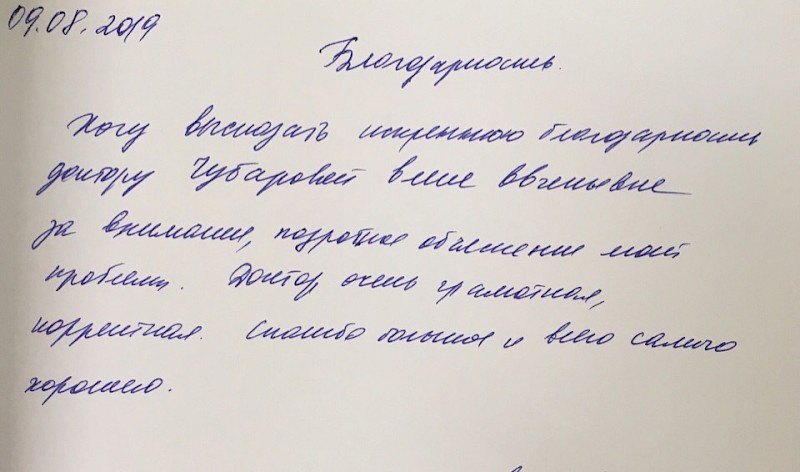 09.08.2019
Благодарность.
Хочу высказать искреннюю благодарность
доктору Чубаровой Евгеньевне
за внимание, подробное объяснение моей
проблемы. Доктор очень грамотная,
корректная. Спасибо большое и всего самого
хорошего.